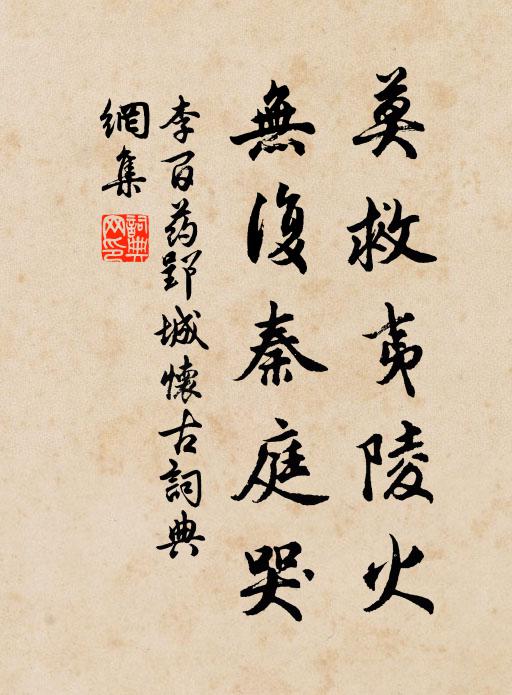 莫救夷陵火
無復秦庭哭
李百药郢城懷古詞典
網集
詞典
网印